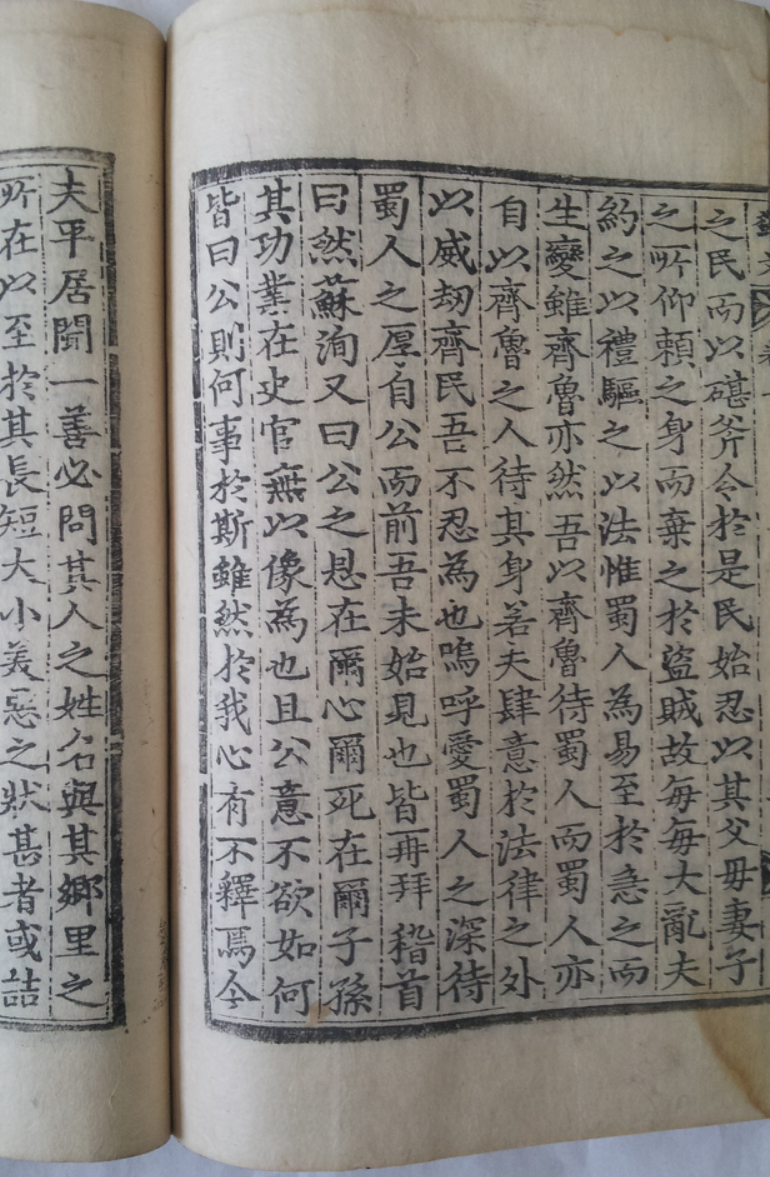 之民而以碪斧令於是民始忍以其父母妻子
之所仰賴之身而棄之於盜賊故每每大亂夫
約之以禮驅之以法惟蜀人為易至於急之而
生變雖齊魯亦然吾以齊魯待蜀人而蜀人亦
自以齊魯之人待其身若夫肆意於法律之外
以威劫齊民吾不忍為也嗚呼愛蜀人之深待
蜀人之厚自公而前吾未始見也皆再拜稽首
曰然蘇洵又曰公之恩在爾心爾死在爾子孫
其功業在史官無以像為也且公意不欲如何
皆曰公則何事於斯雖然於我心有不釋焉今
夫平居聞一善必問其人之姓名與其鄉里之
所在以至於其長短大小美惡之狀甚者或詰